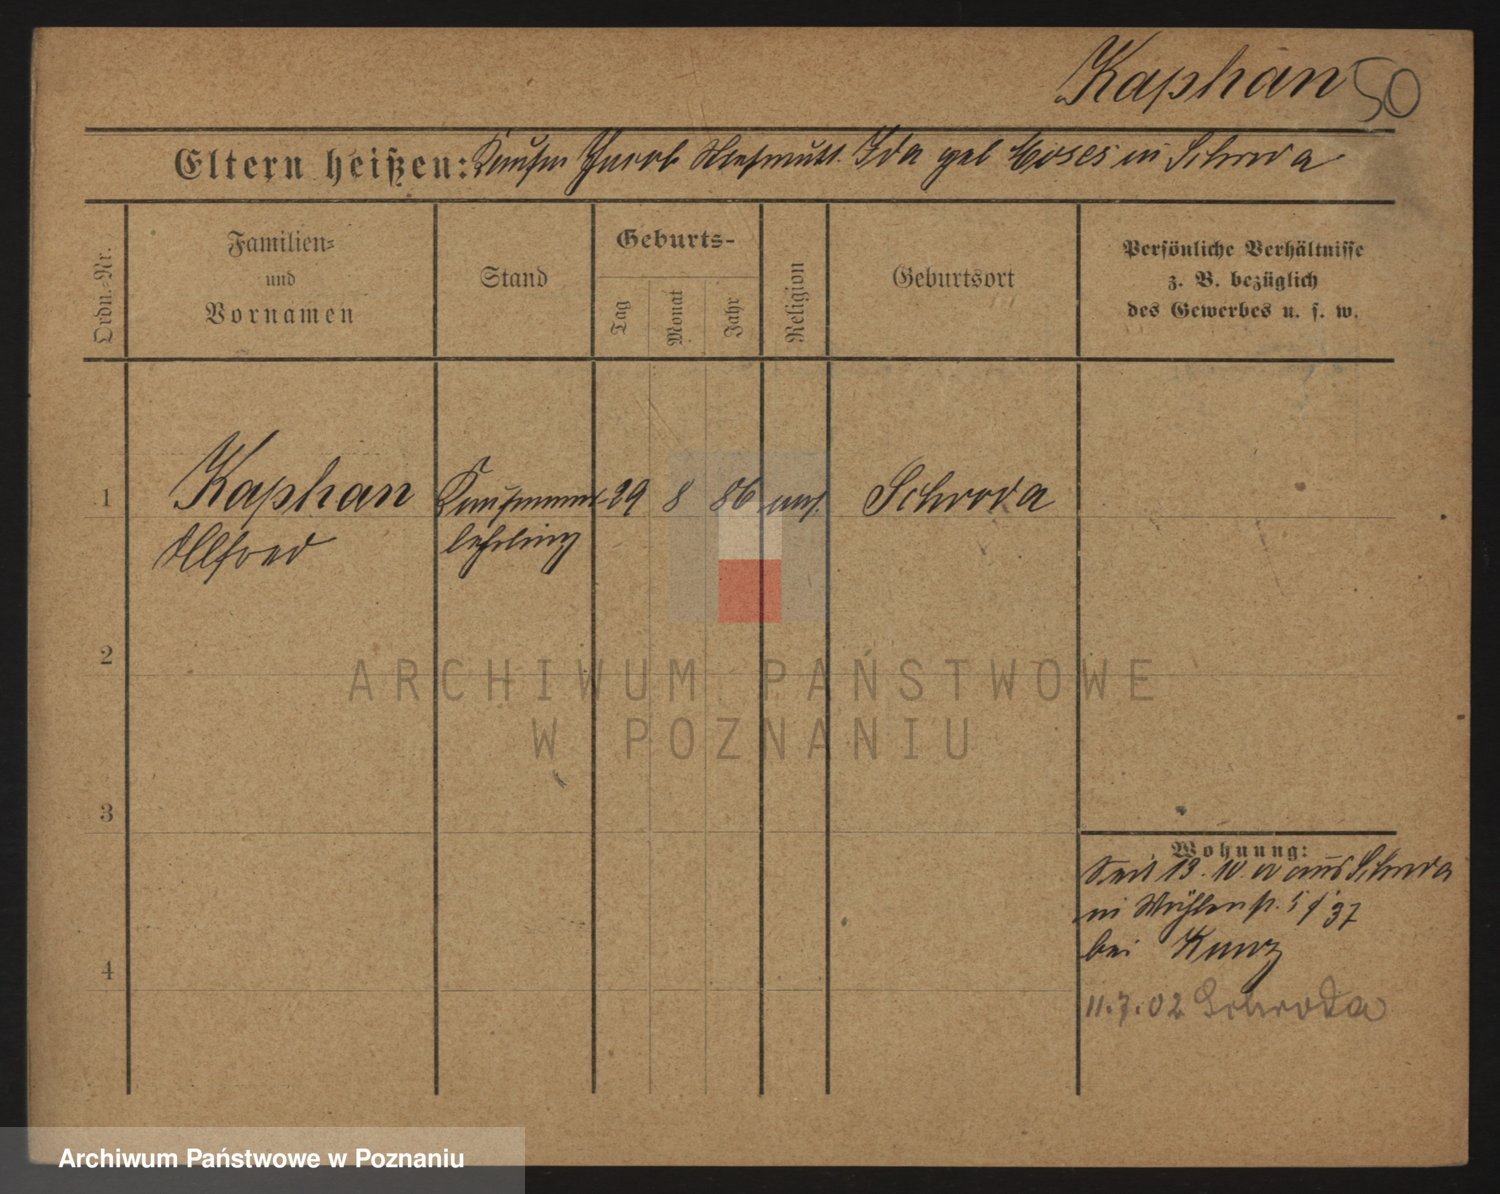 Kaphan 50
Eltern heißen: Kaufm Jacob Stiefmutt. Ida geb Moses in Schroda
Ordn.-Nr.
Familien-
und
Vornamen
Stand
Geburts-
Tag
Monat
Jahr
Religion
Geburtsort
Persönliche Verhältnisse
z. B. bezüglich
des Gewerbes u. s. w.
1 Kaphan Kaufmann- 29 8 86 mos. Schroda
Alfred lehrling
2
3
4
Wohnung:
Seit 13. 10 aus Schroda
in Mühlenstr. 5 37
bei Kunz
11.7.02 Schroda
ARCHIWUM PAŃSTWOWE
W POZNANIU
Archiwum Państwowe w Poznaniu